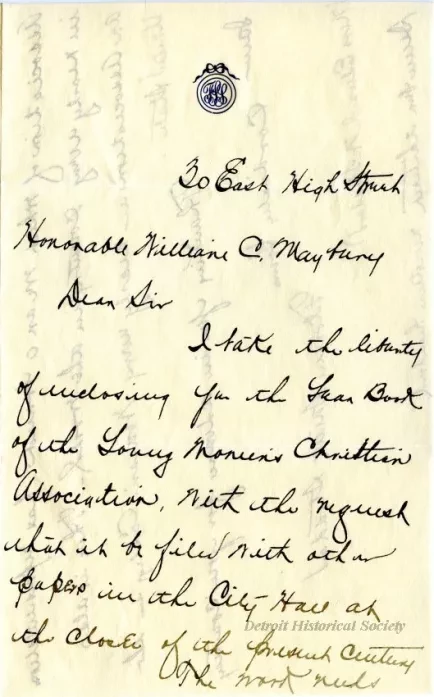 30 East High Street
Honorable William C. Maybury
Dear Sir
I take the liberty
of enclosing you the Year Book
of the Young Women's Christian
Association, with the request
that it be filed with other
papers in the City Hall at
the close of the present Century
Detroit Historical Society
The work needs